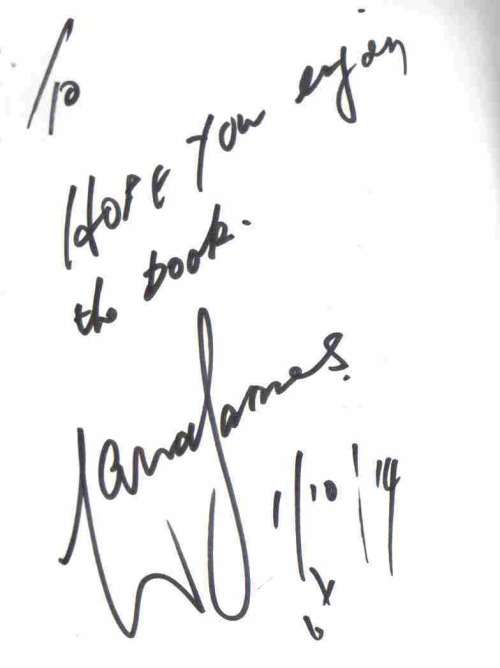 To
HOPE You enjoy
the book.
1/10/14